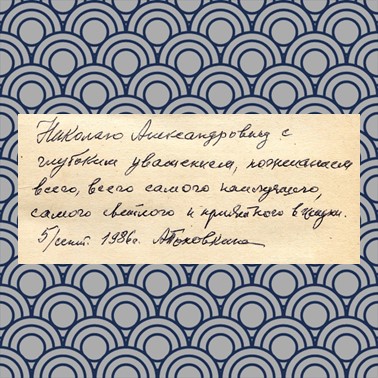 Николаю Александровичу с
глубоким уважением, пожеланием
всего, всего самого наилучшего,
самого светлого и приятного в жизни.
5/сент. 1986г.